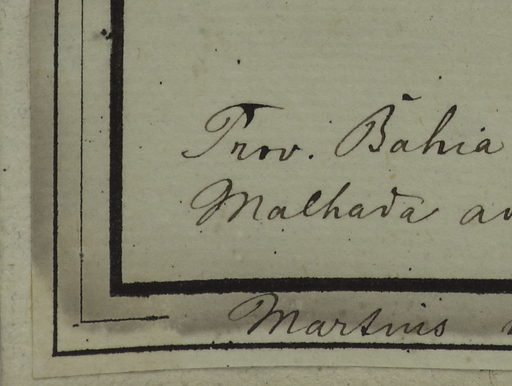 Prov. Bahia
Malhada
Martius